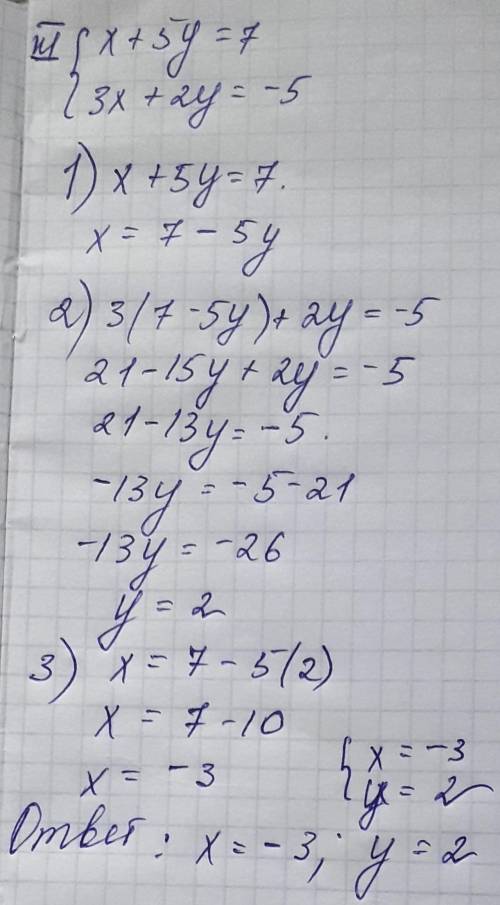 III { x + 5y = 7
{ 3x + 2y = -5
1) x + 5y = 7.
x = 7 - 5y
2) 3(7 - 5y) + 2y = -5
21 - 15y + 2y = -5
21 - 13y = -5.
-13y = -5 - 21
-13y = -26
y = 2
3) x = 7 - 5(2)
x = 7 - 10
x = -3
{ x = -3
y = 2
Ответ: x = -3; y = 2